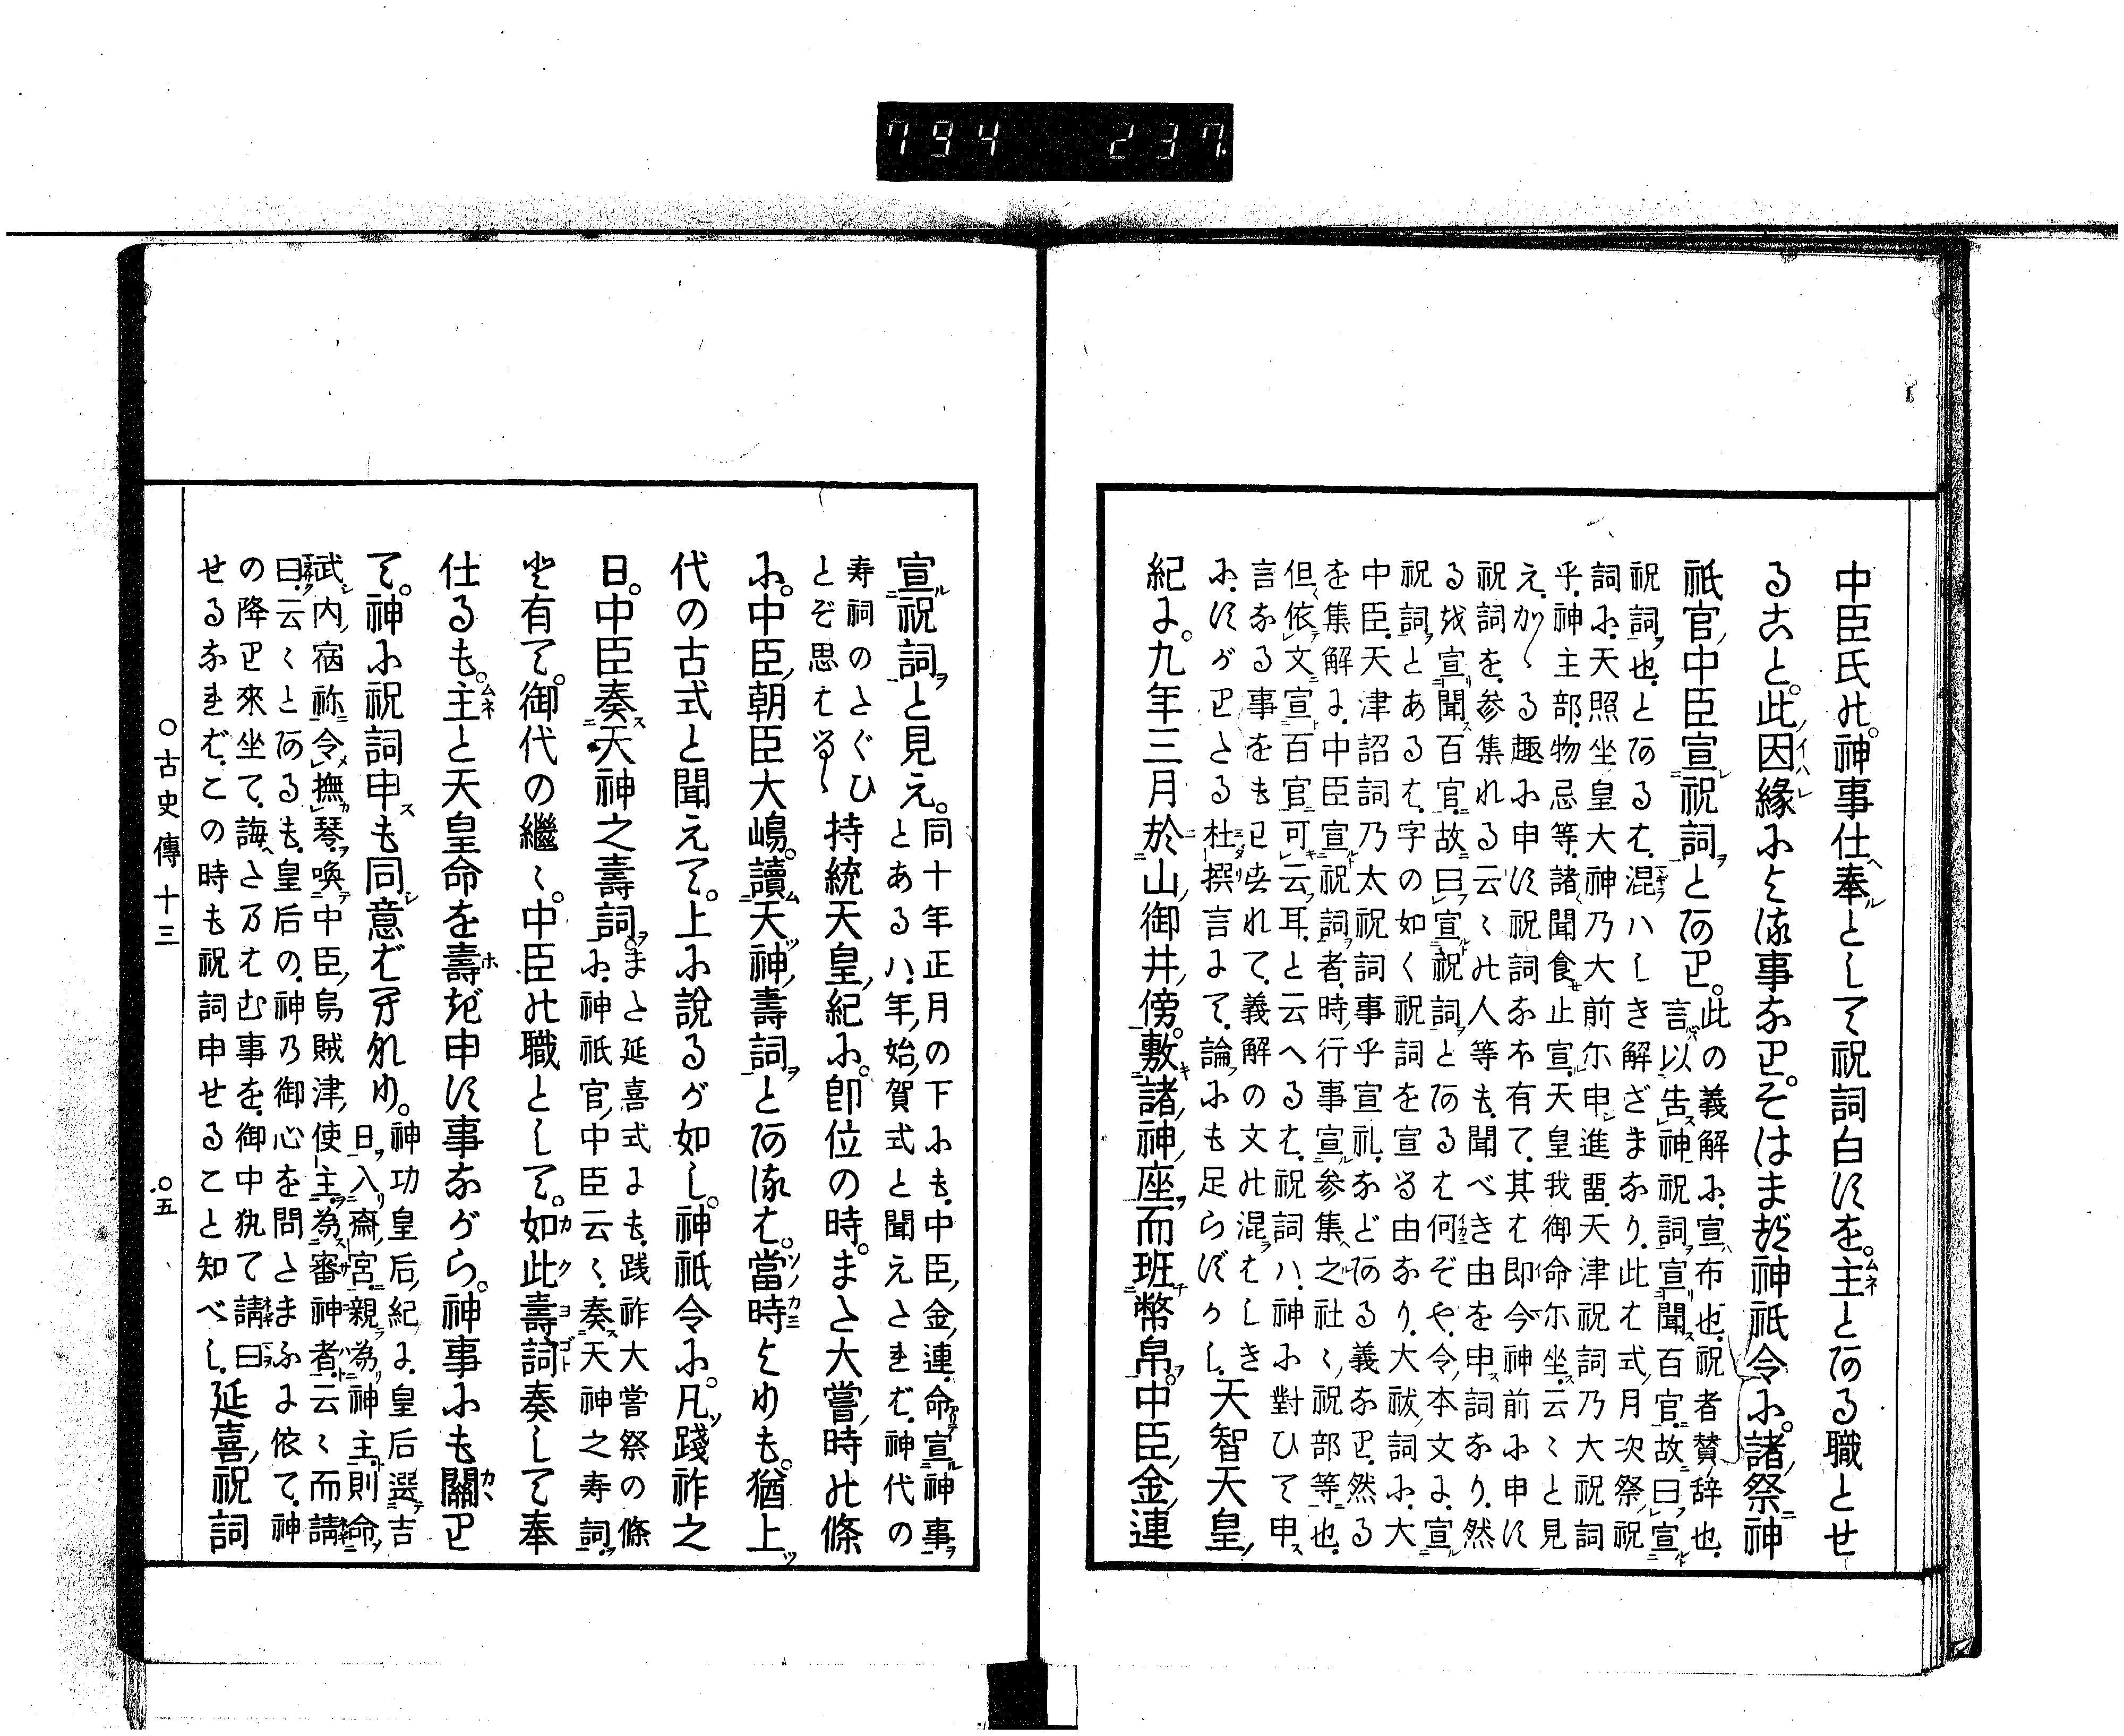 794 237
中臣氏の。神事仕奉として祝詞白すを。主とある職とせ
ること。此因縁による事なり。そはまづ神祇令に。諸祭神
祇官、中臣宣祝詞とあり。
此の義解に、宣布也、祝者賛辞也、
言以告神祝詞宣聞百官、故曰宣
祝詞也、とあるは、混ハしき解ざまなり、此は式、月次祭、祝
詞に、天照坐皇大神乃大前尓申進留、天津祝詞乃大祝詞
乎、神主部、物忌等、諸聞食止宣、天皇我御命尓坐、云々と見
え、かゝる趣に申す祝詞なほ有て、其は即今神前に申す
祝詞を、参集れる云々の人等も、聞べき由を申詞なり、然
るを宣聞百官、故曰宣祝詞とあるは何ぞや、令、本文に、宣
祝詞とあるは、字の如く祝詞を宣る由なり、大祓、詞に、大
中臣、天津詔詞乃太祝詞事乎宣礼、などある義なり、然る
を集解に、中臣宣祝詞者、時、行事宣参集之社々、祝部等也、
但依文宣百官可云耳、と云へるは、祝詞ハ、神に對ひて申
言なる事をも已忘れて、義解の文の混はしき
に、すがりとる杜撰言にて、論にも足らずかし、
天智天皇、
紀に。九年三月於山、御井、傍。敷諸、神、座而班幣帛。中臣、金、連
宣祝詞と見え。
同十年正月の下にも、中臣、金、連、命宣神事
とあるハ、年、始、賀式と聞えたれば、神代の
寿祠のたぐひ
とぞ思はるゝ
持統天皇、紀に。即位の時。また大嘗、時の條
に。中臣、朝臣大嶋。讀天神、壽詞とあるは。當時よりも。猶上
代の古式と聞えて。上に説るが如し。神祇令に。凡踐祚之
日。中臣奏天神之壽詞。
また延喜式にも、践祚大嘗祭の條
に、神祇官、中臣云々、奏天神之寿詞、
と有て。御代の繼々。中臣の職として。如此壽詞奏して奉
仕るも。主と天皇命を壽ぎ申す事ながら。神事にも關り
て。神に祝詞申も同意ばえなれり。
神功皇后、紀に、皇后選吉
日、入齋、宮、親為神主、則命
武内、宿祢令撫琴、喚中臣、烏賊津、使主、為審神者、云々而請
曰、云々とあるも、皇后の、神乃御心を問たまふに依て、神
の降り來坐て、誨たまはむ事を、御中執て請曰
せるなれば、この時も祝詞申せること知べし、
延喜、祝詞
○古史傳十三 ○五